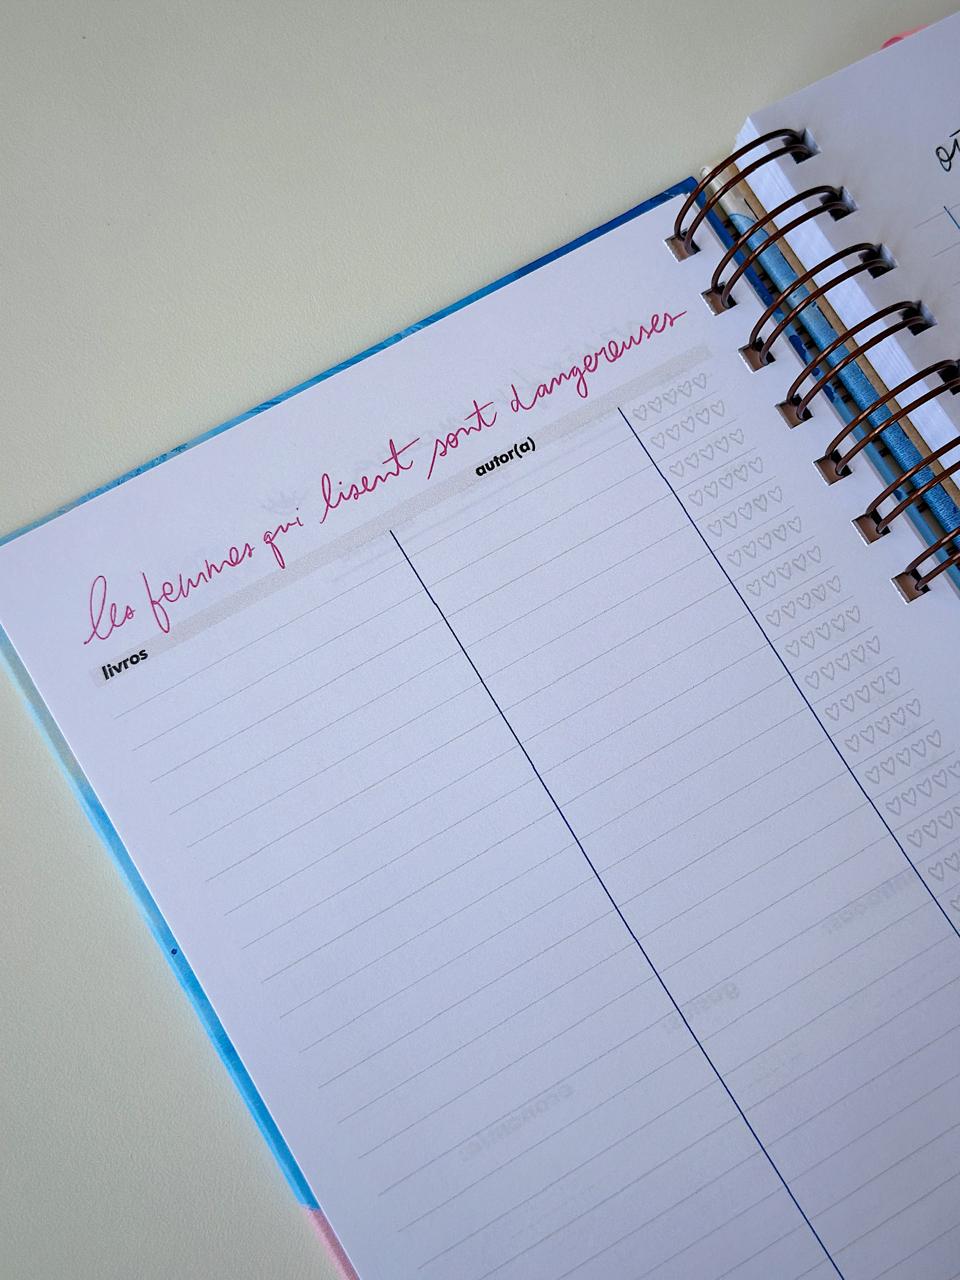 les femmes qui lisent sont dangereuses
livros
autor(a)